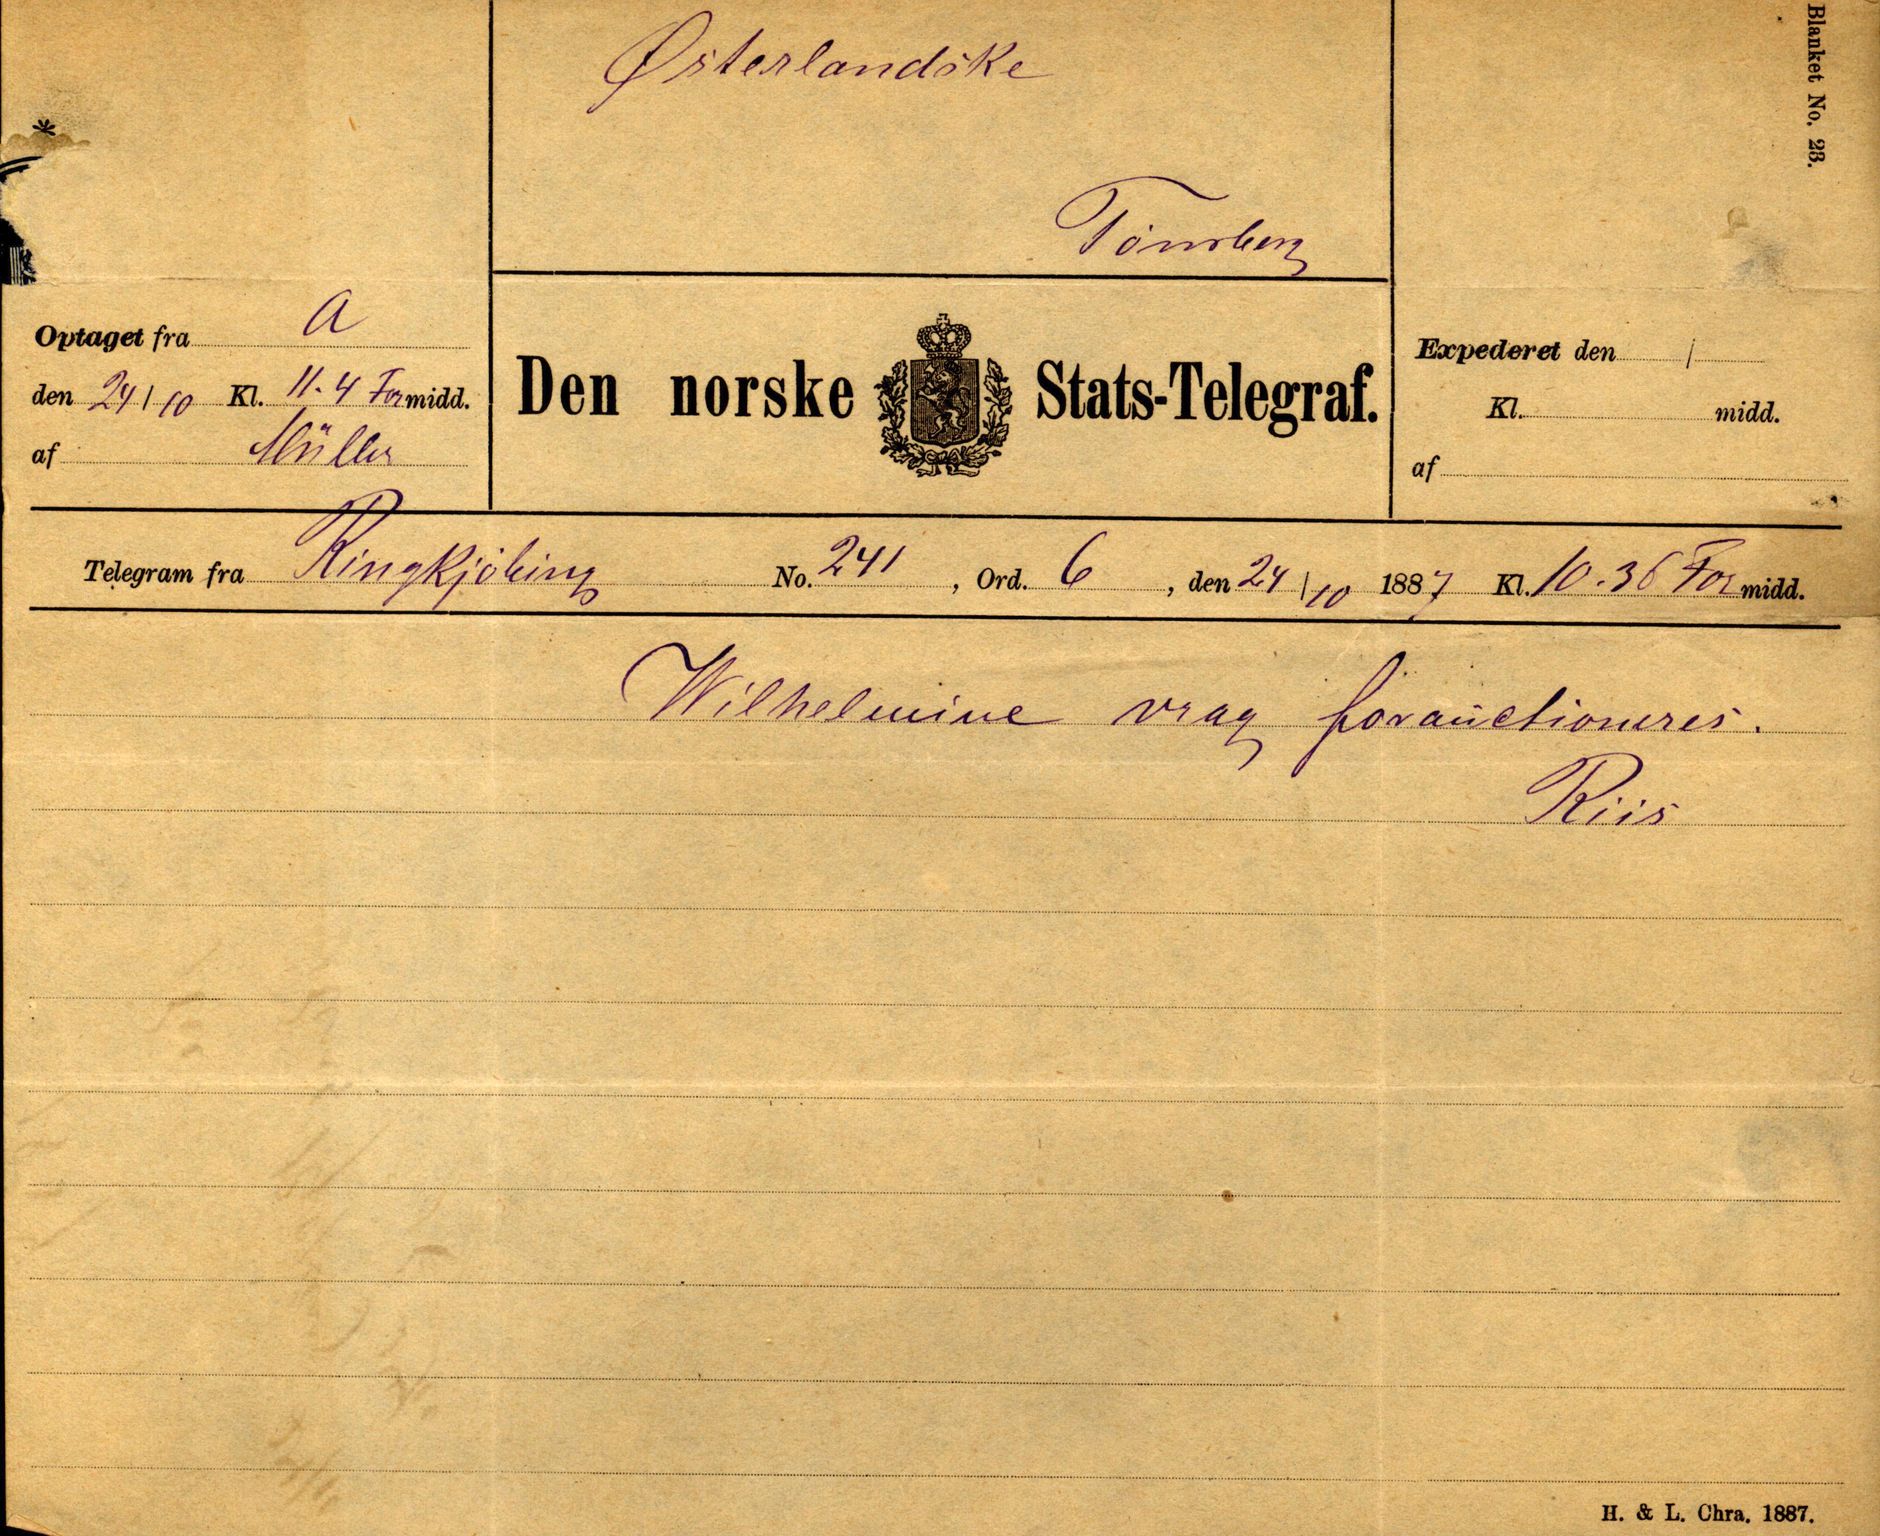 Blanket No. 23.
Østerlandske
Tønsberg
Optaget fra A
den 24/10 Kl. 11-4 Formidd.
af Müller
Den norske Stats-Telegraf.
Expederet den /
Kl. midd.
af
Telegram fra Ringkjöbing No. 241, Ord. 6, den 24/10 1887 Kl. 10.36 Formidd.
Wilhelmine vrag forauctioneres.
Riis
H. & L. Chra. 1887.